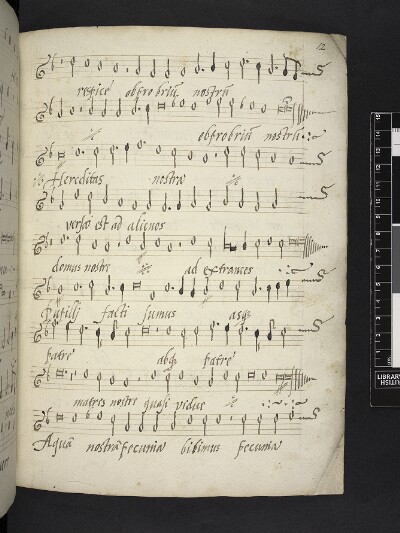 12
respice obprobriū nostrū
obprobriū nostrū
Hereditas nostra
versa est ad alienos
domus nostre ad extraneos
Pupilli facti sumus absq;
patre absq; patre
matres nostre quasi vidue
Aquā nostrā pecunia bibimus pecunia
LIBRARY